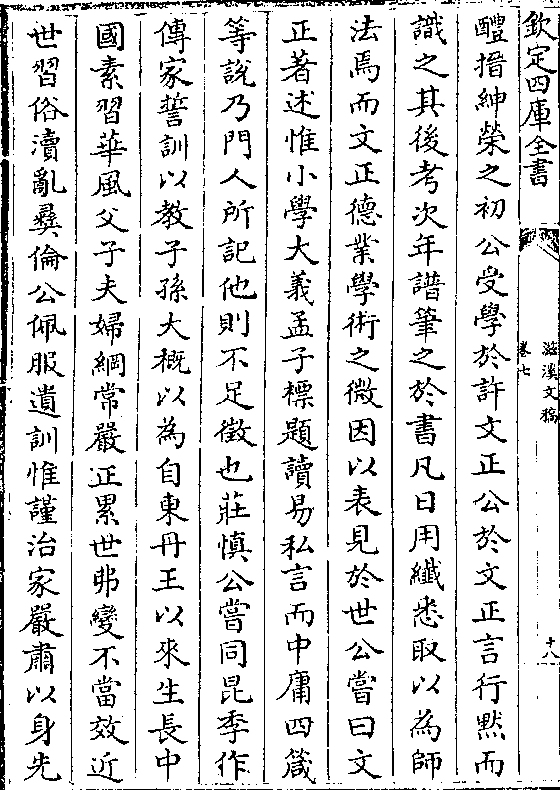 欽定四庫全書
滋溪文稿
卷七
十八
醴搢紳榮之初公受學於許文正公於文正言行黙而
識之其後考次年譜筆之於書凡日用纎悉取以為師
法焉而文正德業學術之微因以表見於世公嘗曰文
正著述惟小學大義孟子標題讀易私言而中庸四箴
等說乃門人所記他則不足徵也莊慎公嘗同昆季作
傳家誓訓以教子孫大槪以為自東丹王以來生長中
國素習華風父子夫婦綱常嚴正累世弗變不當效近
世習俗瀆亂彞倫公佩服遺訓惟謹治家嚴肅以身先